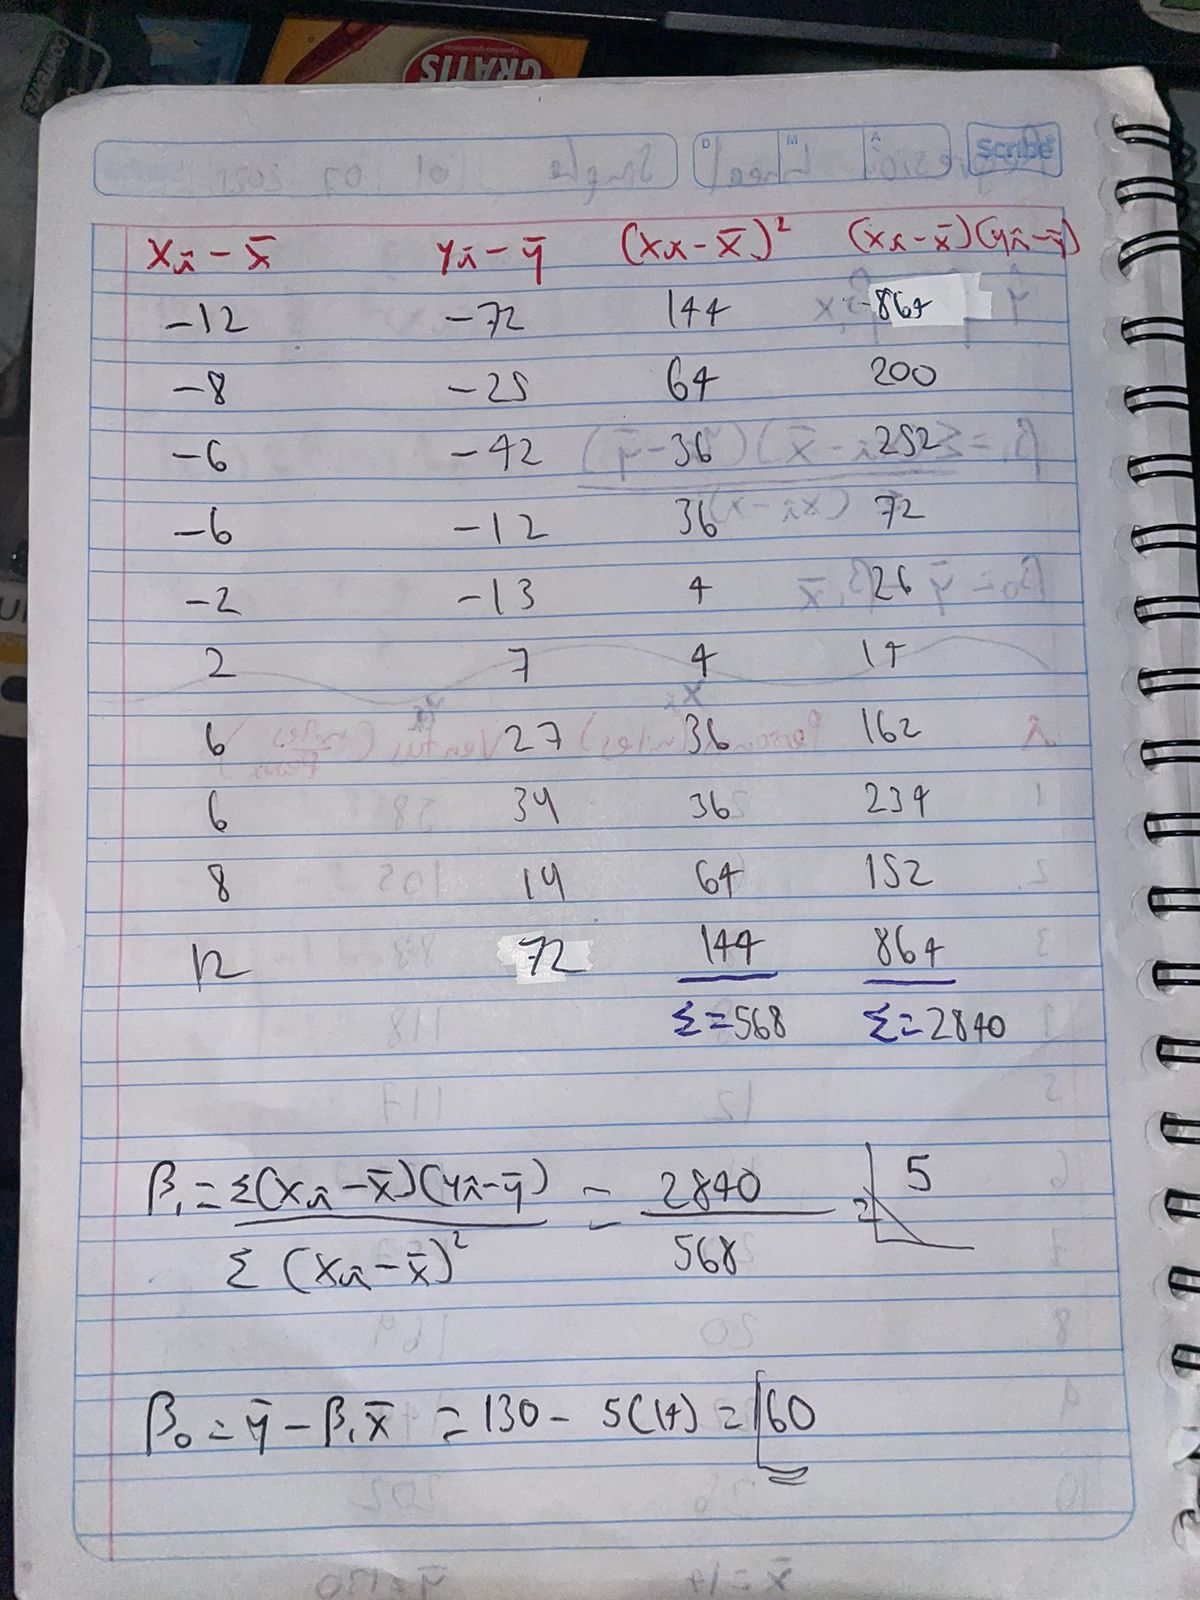 GRATIS
D M A Scribe
Xi - x̄ yi - ȳ (xi - x̄)² (xi - x̄)(yi - ȳ)
-12 -72 144 864
-8 -25 64 200
-6 -42 36 252
-6 -12 36 72
-2 -13 4 26
2 7 4 14
6 27 36 162
6 39 36 234
8 19 64 152
12 72 144 864
Σ = 568 Σ = 2840
β₁ = Σ(xi - x̄)(yi - ȳ) = 2840 = 5
Σ (xi - x̄)² 568
β₀ = ȳ - β₁x̄ = 130 - 5(14) = 60